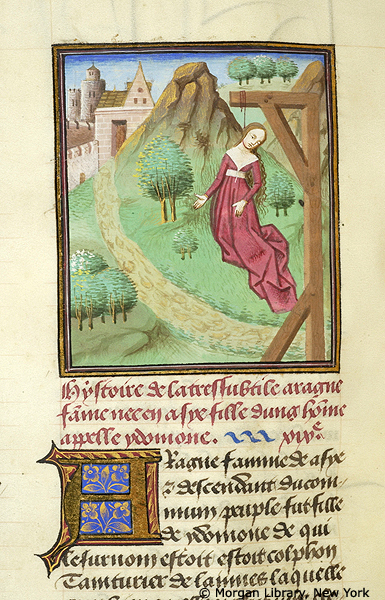 Hystoire de la tressubtile aragne
fame nee en asye fille dung home
appelle ydomone. xvije
Aragne famme de asye
& descendant du com
mum peuple fut fille
de ydmone de qui
le surnom estoit estoit colphon
Tainturier de lainnes laquelle
© Morgan Library, New York